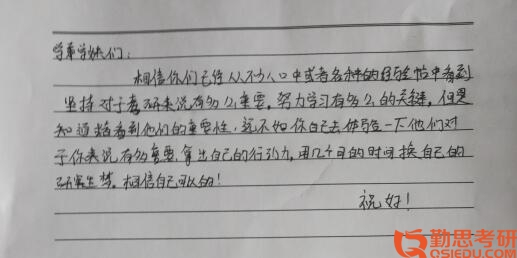 学弟学妹们：
相信你们已经从不少人口中或者各种的经验帖中看到
坚持对于考研来说有多么重要，努力学习有多么的关键，但是
知道或看到他们的重要性，远不如你自己去体验一下他们对
于你来说有多重要，拿出自己的行动力，用几个月的时间换自己的
研究生梦，相信自己可以的！
祝好！
勤思考研
QSIEDU.COM